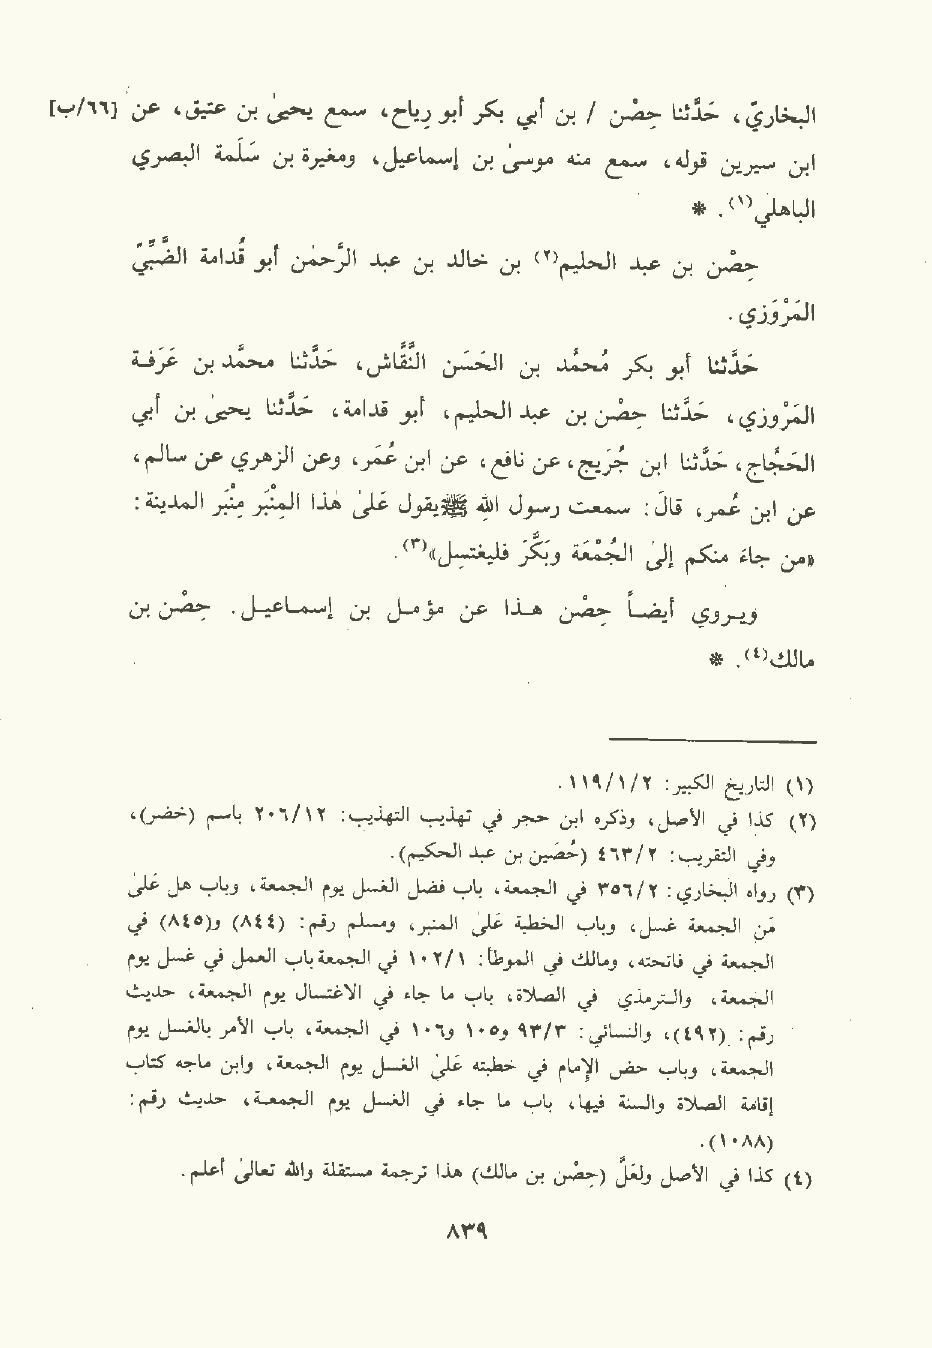 البخاريّ، حَدَّثنا حِصْن / بن أبي بكر أبو رياح، سمع يحيىٰ بن عتيق، عن [٦٦/ب]
ابن سيرين قوله، سمع منه موسىٰ بن إسماعيل، ومغيرة بن سَلَمة البصري
الباهلي(١). *
حِصْن بن عبد الحليم(٢) بن خالد بن عبد الرَّحمٰن أبو قُدامة الضَّبِّيّ
المَرْوَزي.
حَدَّثنا أبو بكر مُحمَّد بن الحَسَن النَّقَّاش، حَدَّثنا محمَّد بن عَرَفة
المَرْوزي، حَدَّثنا حِصْن بن عبد الحليم، أبو قدامة، حَدَّثنا يحيىٰ بن أبي
الحَجَّاج، حَدَّثنا ابن جُرَيج، عن نافع، عن ابن عُمَر، وعن الزهري عن سالم،
عن ابن عُمر، قالَ: سمعت رسول الله ﷺ يقول عَلىٰ هٰذا المِنْبَر مِنْبَر المدينة:
«من جاءَ منكم إلىٰ الجُمْعَة وَبَكَّرَ فليغتسل»(٣).
ويروي أيضاً حِصْن هذا عن مؤمل بن إسماعيل. حِصْن بن
مالك(٤). *
(١) التاريخ الكبير: ١١٩/١/٢.
(٢) كذا في الأصل، وذكره ابن حجر في تهذيب التهذيب: ٢٠٦/١٢ باسم (خضر)،
وفي التقريب: ٤٦٣/٢ (حُضَين بن عبد الحكيم).
(٣) رواه البخاري: ٣٥٦/٢ في الجمعة، باب فضل الغسل يوم الجمعة، وباب هل عَلىٰ
مَن الجمعة غسل، وباب الخطبة عَلىٰ المنبر، ومسلم رقم: (٨٤٤) و(٨٤٥) في
الجمعة في فاتحته، ومالك في الموطأ: ١٠٢/١ في الجمعة باب العمل في غسل يوم
الجمعة، والترمذي في الصلاة، باب ما جاء في الاغتسال يوم الجمعة، حديث
رقم: (٤٩٢)، والنسائي: ٩٣/٣ و١٠٥ و١٠٦ في الجمعة، باب الأمر بالغسل يوم
الجمعة، وباب حض الإمام في خطبته عَلىٰ الغسل يوم الجمعة، وابن ماجه كتاب
إقامة الصلاة والسنة فيها، باب ما جاء في الغسل يوم الجمعة، حديث رقم:
(١٠٨٨).
(٤) كذا في الأصل ولعَلَّ (حِصْن بن مالك) هذا ترجمة مستقلة والله تعالىٰ أعلم.
٨٣٩